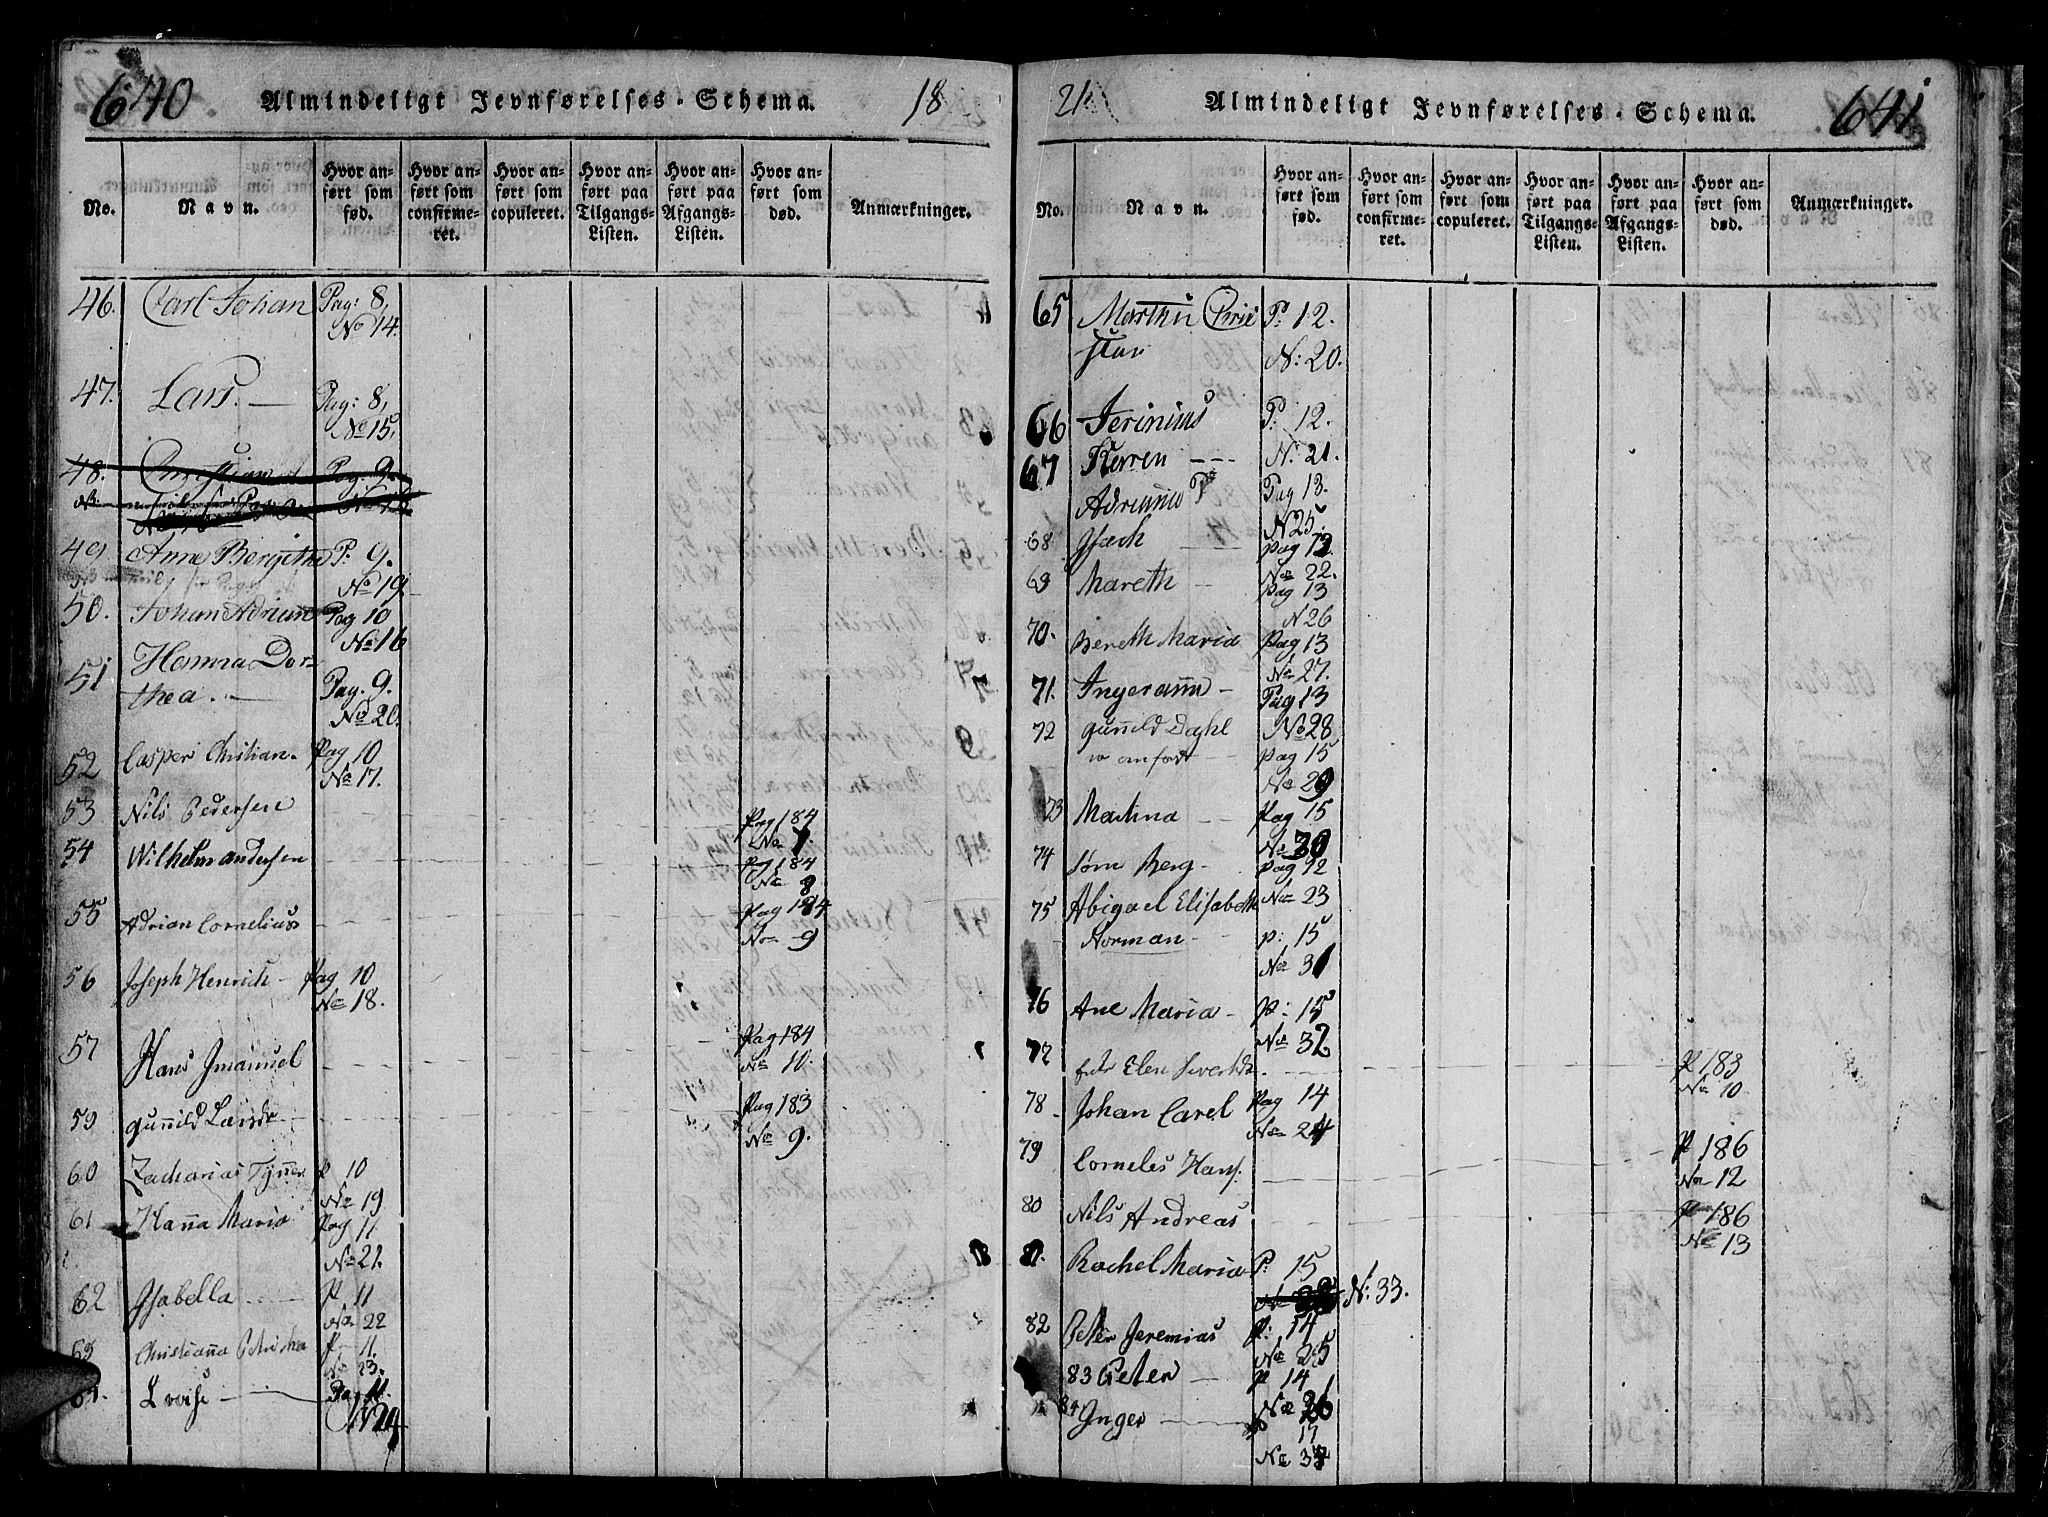 640 Almindeligt Jevnførelses-Schema. 18
No. Navn. Hvor anført som fød. Hvor anført som confirmeret. Hvor anført som copuleret. Hvor anført paa Tilgangs-Listen. Hvor anført paa Afgangs-Listen. Hvor anført som død. Anmærkninger.
46. Carl Johan Pag: 8,
No 14.
47. Lars. — Pag: 8,
No 15.
48. Pag. 9.
49. Anne Bergethe P: 9.
No 19
50. Johan Adrian Pag 10
No 16
51 Hanna Dor-
thea. — Pag. 9.
No 20.
52 Casper Christian. Pag 10
No 17.
53 Nils Pedersen Pag 184
No 7
54 Wilhelm andersen Pag 184
No 8
55 Adrian Cornelius Pag 184
No 9
56 Joseph Henrich - Pag 10
No 18.
57 Hans Jmanuel Pag 184
No 10.
59 gunild Pag 183
No 9.
60 Zacharias P 10
No 19
61 Hanna Maria Pag 11
No 21.
62 Jsabella P 11
No 22
63 Christianna P 11.
No 23.
64. Lovise — Pag 11.
N 24
21 Almindeligt Jevnførelses-Schema. 641
No. Navn. Hvor anført som fød. Hvor anført som confirmeret. Hvor anført som copuleret. Hvor anført paa Tilgangs-Listen. Hvor anført paa Afgangs-Listen. Hvor anført som død. Anmærkninger.
65 P: 12.
N: 20.
66 P: 12.
67 Karen — N: 21.
Pag 13.
N 25.
68 Jsach — pag 12
No 22.
69 Mareth — pag 13
N 26
70. Bereth Maria Pag 13
No 27.
71. Pag 13
No 28
72 gunild Dahl
pag 15
No 29
73 Martina — Pag 15
No 30
74 Jørn Berg - pag 12
No 23
75 Abigael Elisabeth
Norman — p: 15
No 31
76 Ane Maria - P: 15
No 32
77 Elen P 183
No 10
78 Johan Carel Pag 14
No 24
79 Corneles Hans. P 186
No 12
80 Nils Andreas P 186
No 13
81. Rachel Maria P: 15
N: 33.
82 Peter Jeremias P: 14
No 25
83 Peter — P 14
No 26
84 Inger — 17
No 37